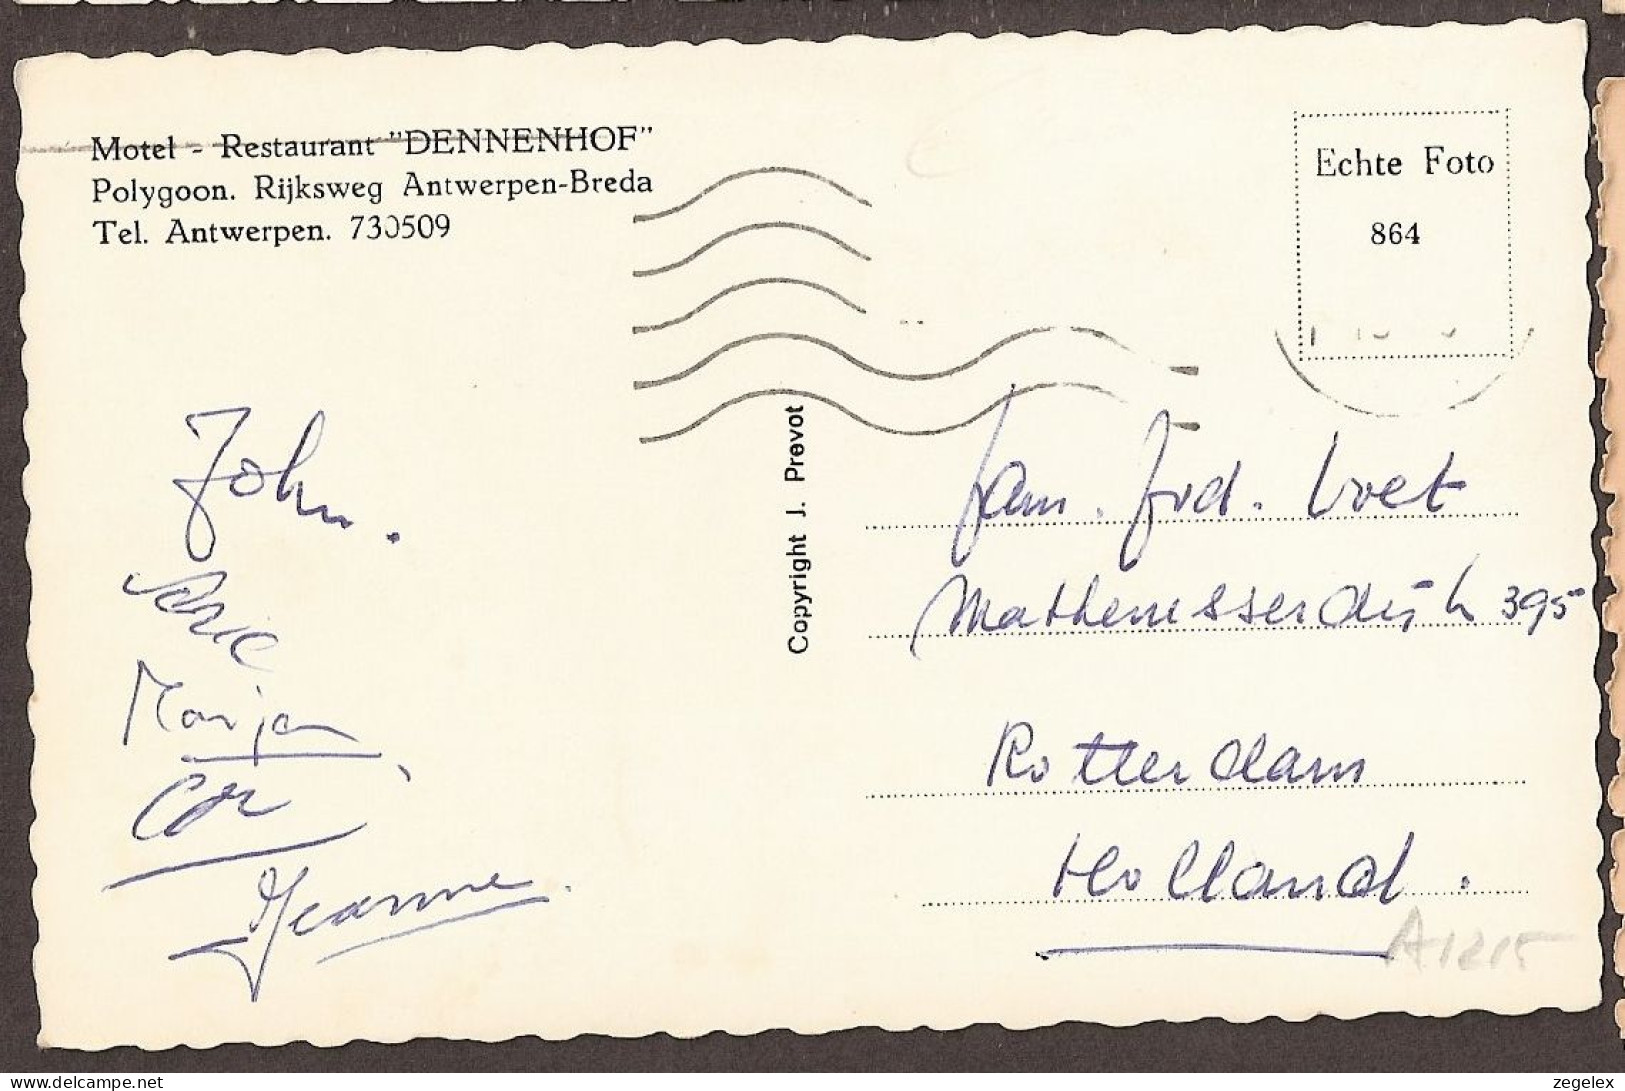 Motel - Restaurant "DENNENHOF"
Polygoon. Rijksweg Antwerpen-Breda
Tel. Antwerpen. 730509
Echte Foto
864
Copyright J. Prevot
John.
Arie
Marjan,
Cor
Jeanne.
fam. Voet
Mathenesserdijk 395
Rotterdam
Holland.
A1215
www.delcampe.net
zegelex